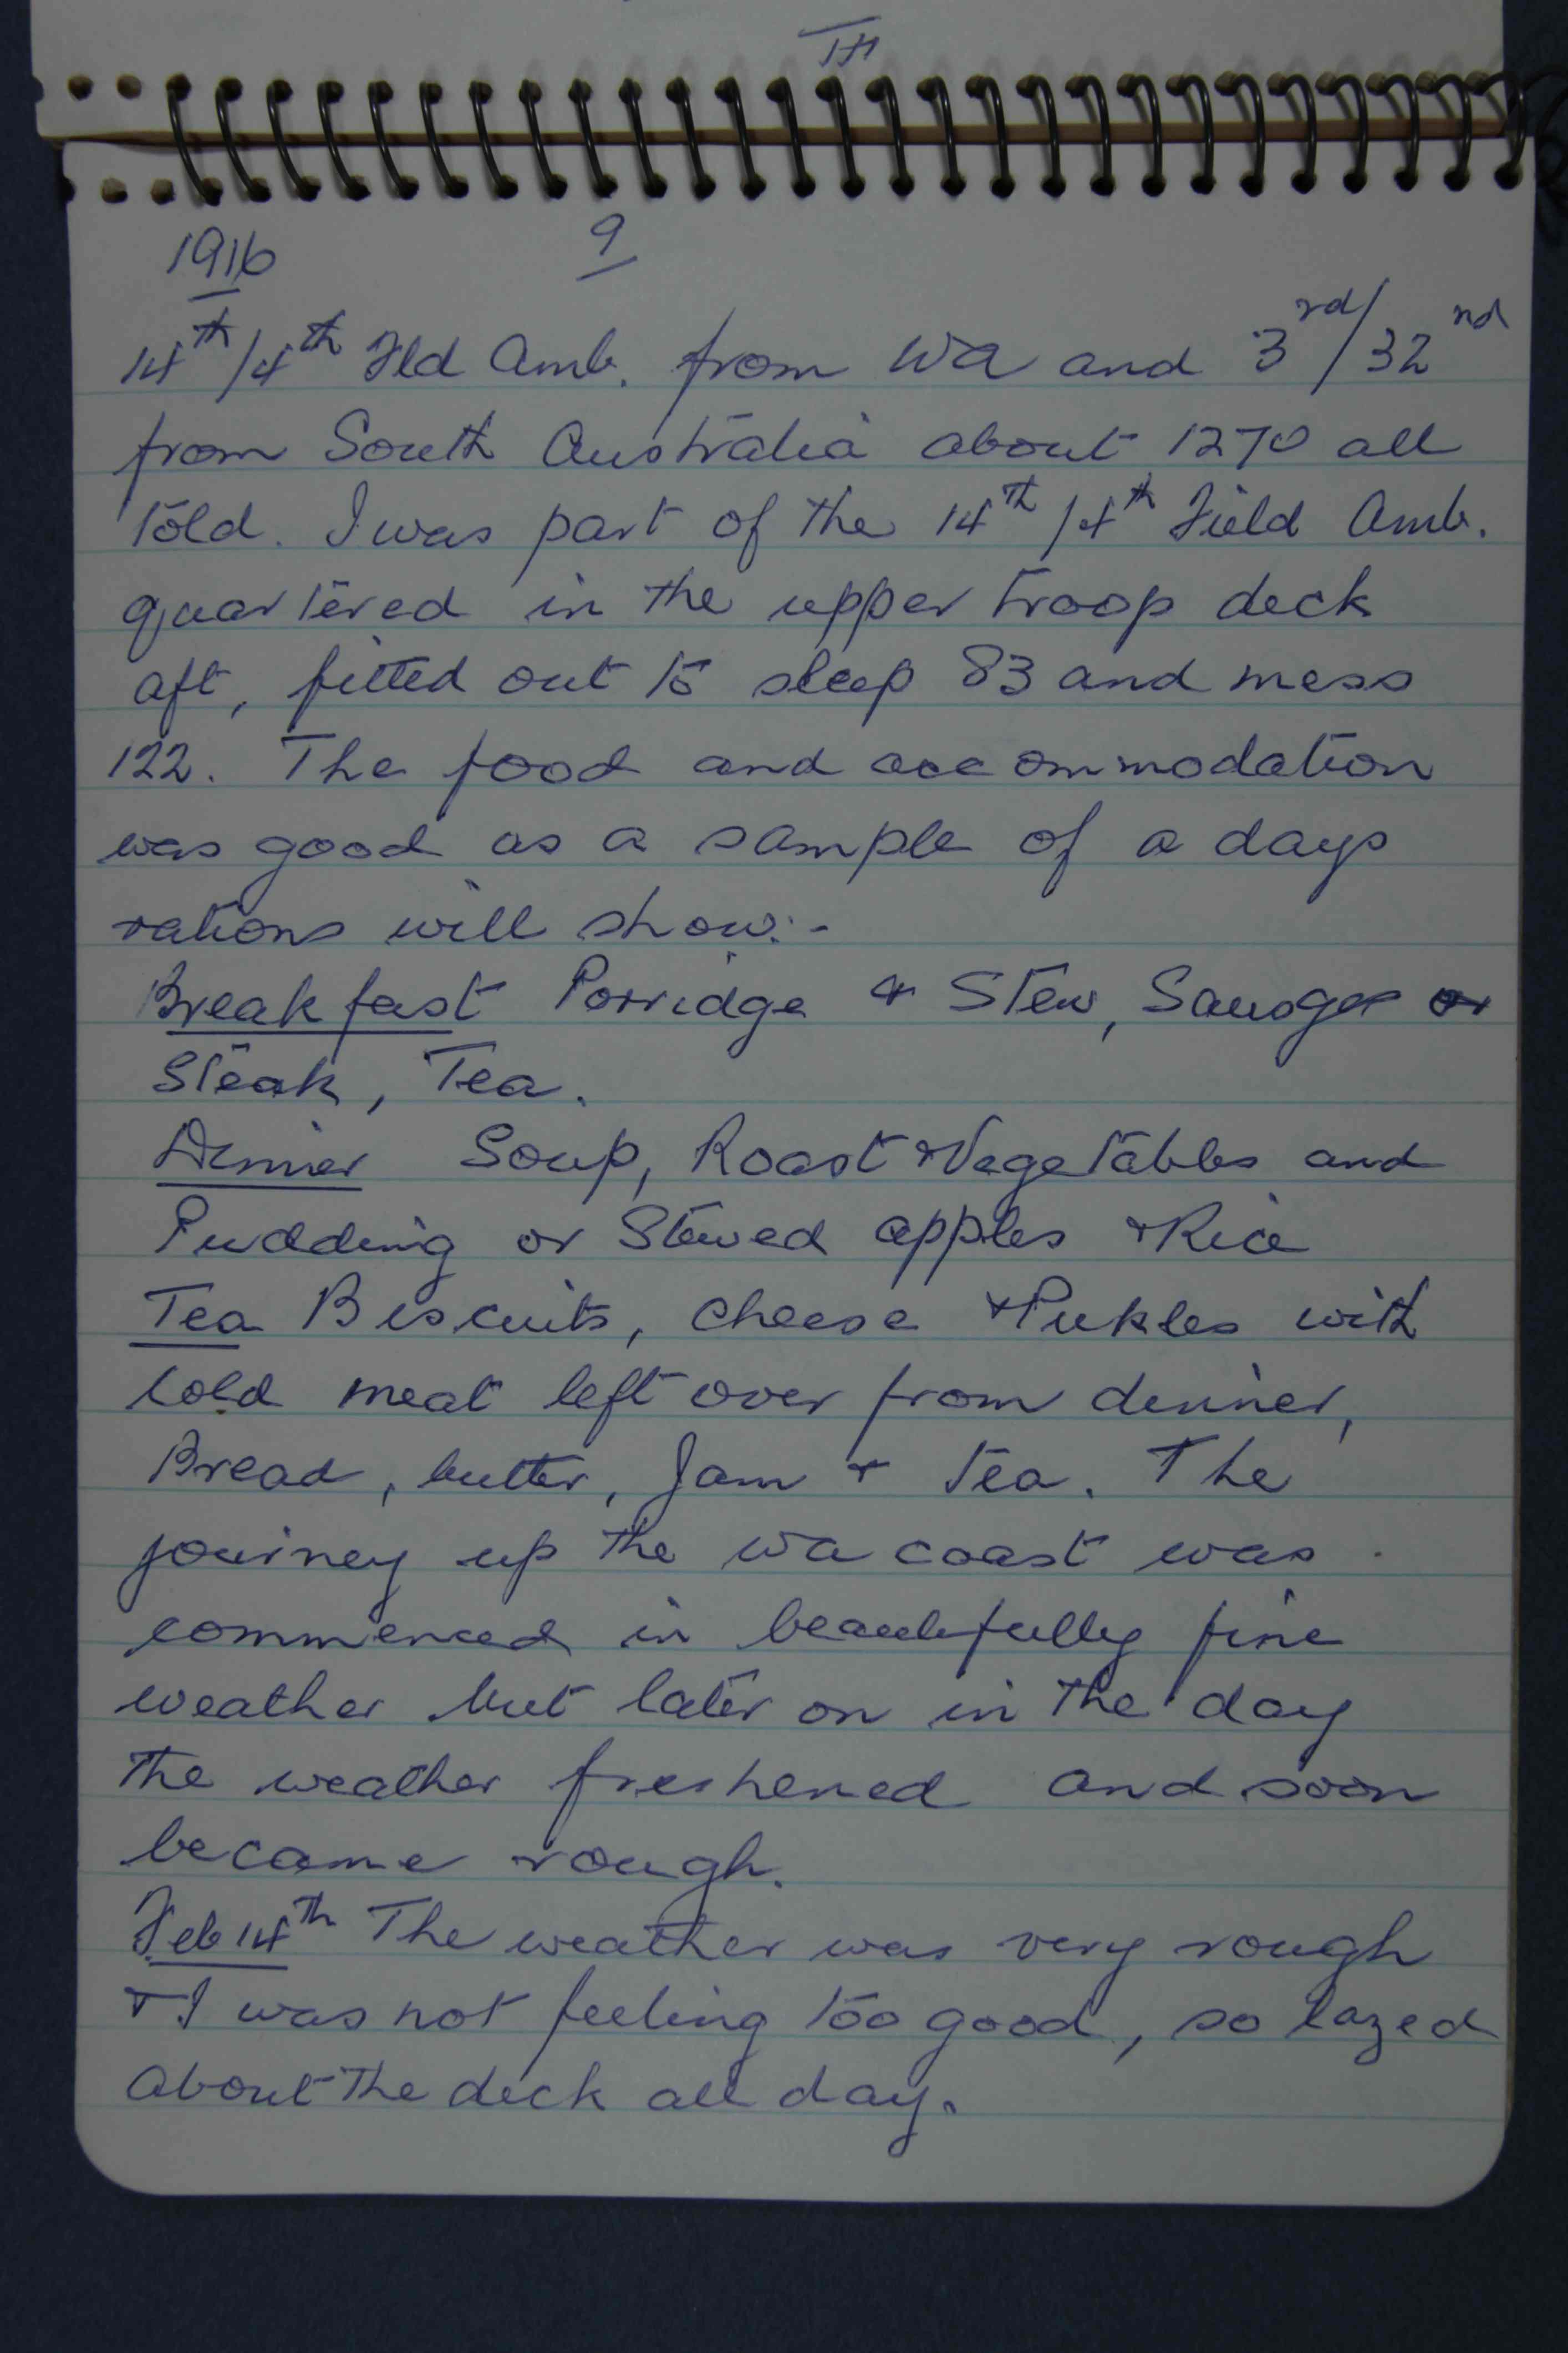 1916
9
14th/4th Fld Amb. from WA and 3rd/32nd
from South Australia about 1270 all
told. I was part of the 14th/4th Field Amb.
quartered in the upper troop deck
aft, fitted out to sleep 83 and mess
122. The food and accommodation
was good as a sample of a days
rations will show:-
Breakfast Porridge & Stew, Sausages or
Steak, Tea.
Dinner Soup, Roast & Vegetables and
Pudding or Stewed apples & Rice
Tea Biscuits, cheese & Pickles with
cold meat left over from dinner,
Bread, butter, Jam & Tea. The
journey up the WA coast was
commenced in beautifully fine
weather but later on in the day
the weather freshened and soon
became rough.
Feb 14th The weather was very rough
& I was not feeling too good, so lazed
about the deck all day.